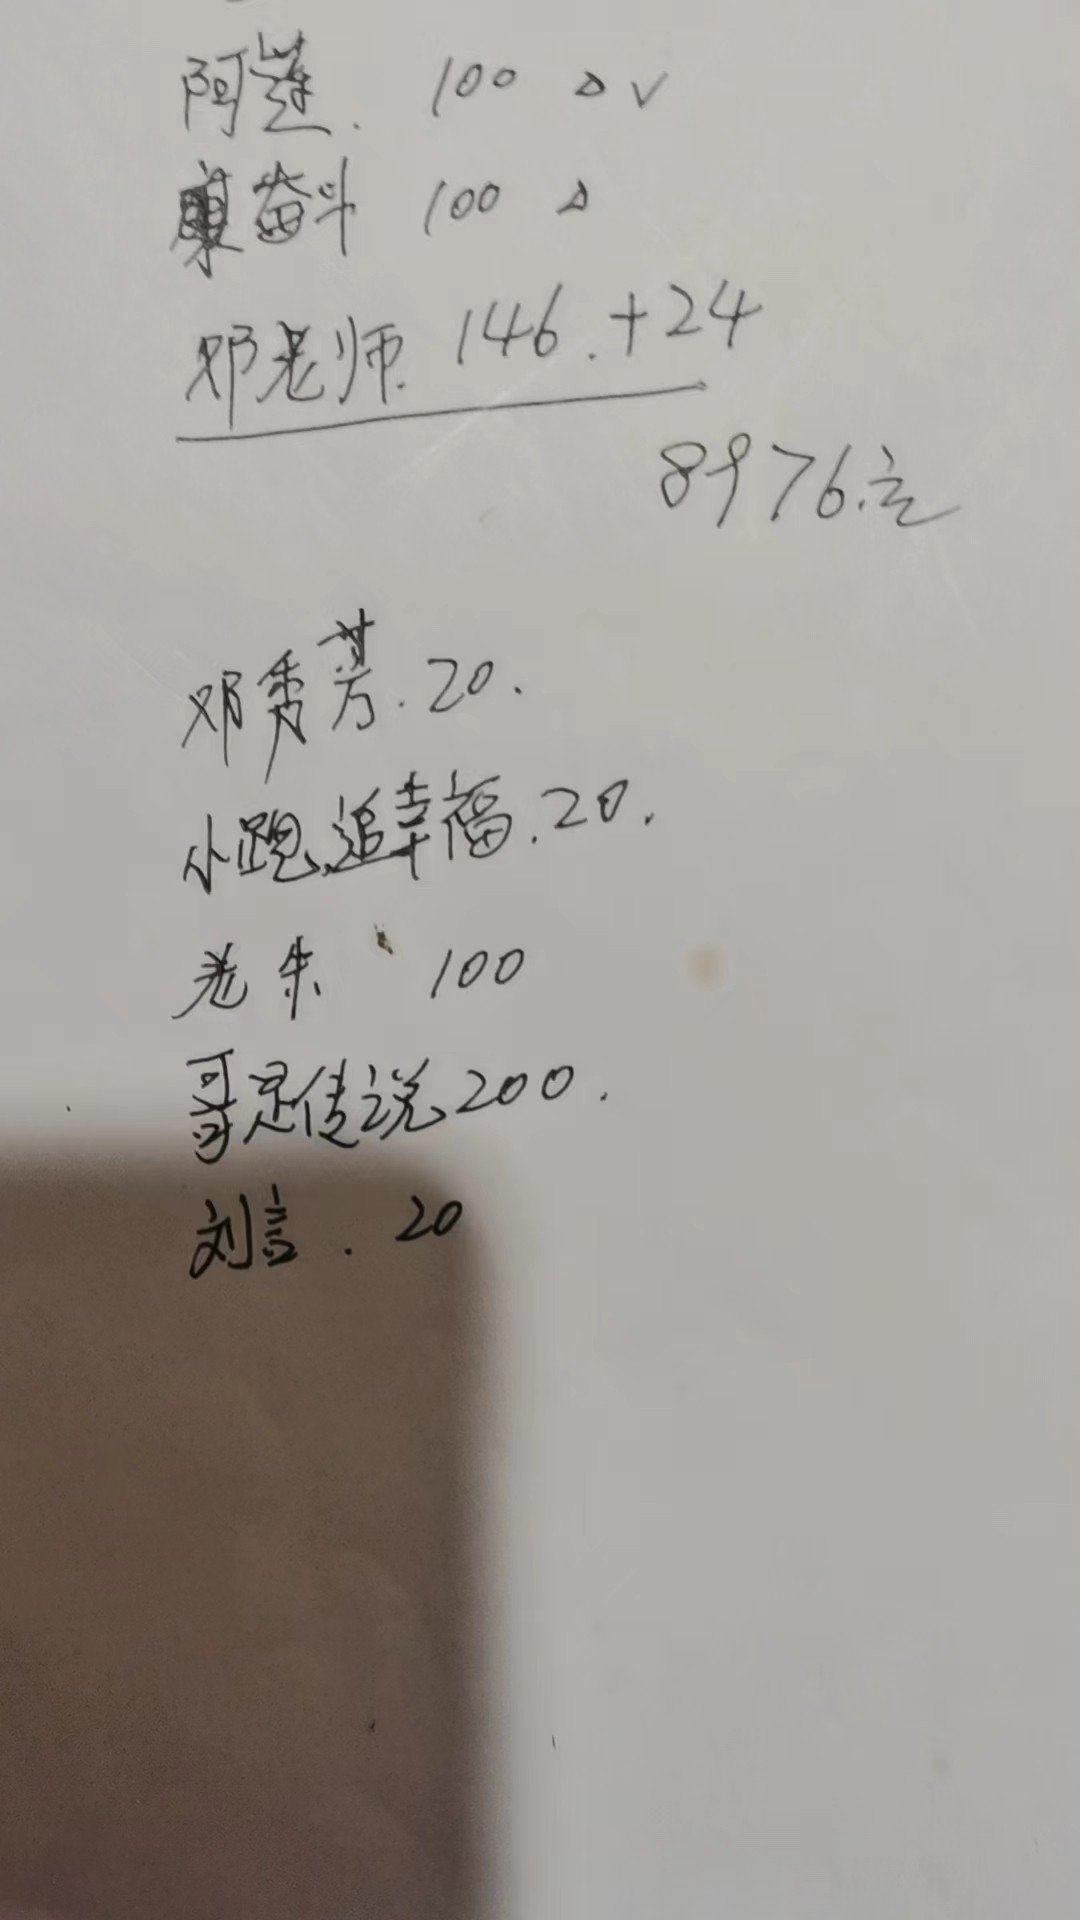 阿莲. 100 △ √
奋斗 100 △
邓老师. 146.+24
8976.元
邓秀芳.20.
小跑追幸福.20.
老朱 100
哥是传说 200.
刘言. 20